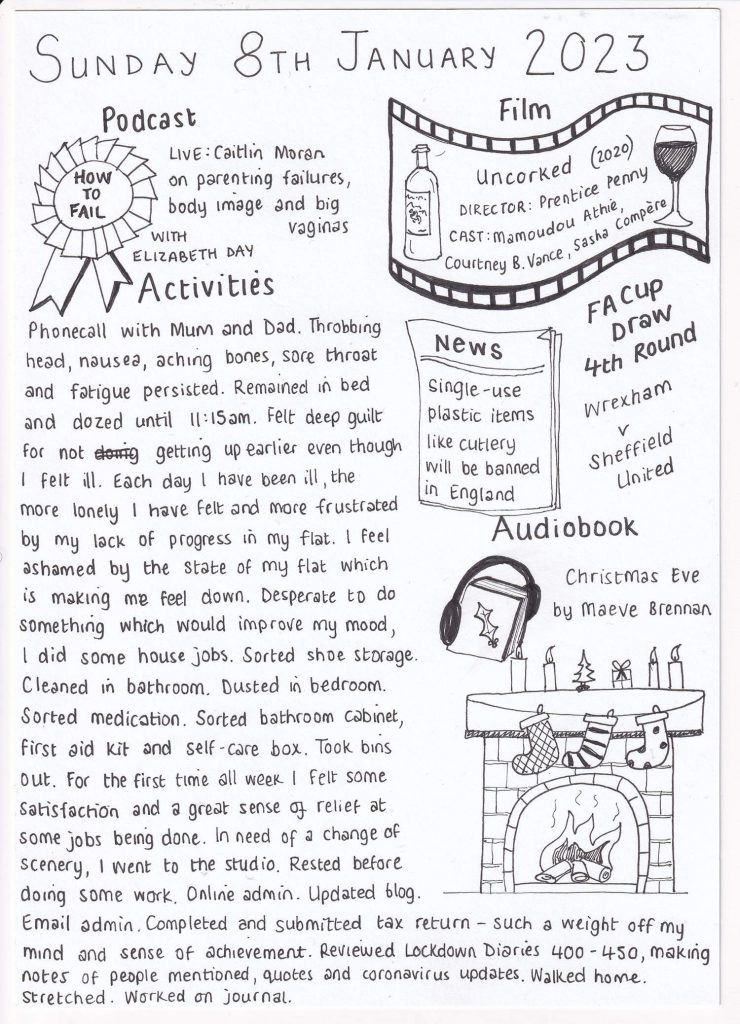 SUNDAY 8TH JANUARY 2023
Podcast
HOW TO FAIL
LIVE: Caitlin Moran
on parenting failures,
body image and big
vaginas
WITH
ELIZABETH DAY
Film
Uncorked (2020)
DIRECTOR: Prentice Penny
CAST: Mamoudou Athie,
Courtney B. Vance, Sasha Compère
Activities
Phonecall with Mum and Dad. Throbbing
head, nausea, aching bones, sore throat
and fatigue persisted. Remained in bed
and dozed until 11:15am. Felt deep guilt
for not doing getting up earlier even though
I felt ill. Each day I have been ill, the
more lonely I have felt and more frustrated
by my lack of progress in my flat. I feel
ashamed by the state of my flat which
is making me feel down. Desperate to do
something which would improve my mood,
I did some house jobs. Sorted shoe storage.
Cleaned in bathroom. Dusted in bedroom.
Sorted medication. Sorted bathroom cabinet,
first aid kit and self-care box. Took bins
out. For the first time all week I felt some
satisfaction and a great sense of relief at
some jobs being done. In need of a change of
scenery, I went to the studio. Rested before
doing some work. Online admin. Updated blog.
Email admin. Completed and submitted tax return - such a weight off my
mind and sense of achievement. Reviewed Lockdown Diaries 400-450, making
notes of people mentioned, quotes and coronavirus updates. Walked home.
Stretched. Worked on journal.
News
Single-use
plastic items
like cutlery
will be banned
in England
FA Cup
Draw
4th Round
Wrexham
v
Sheffield
United
Audiobook
Christmas Eve
by Maeve Brennan